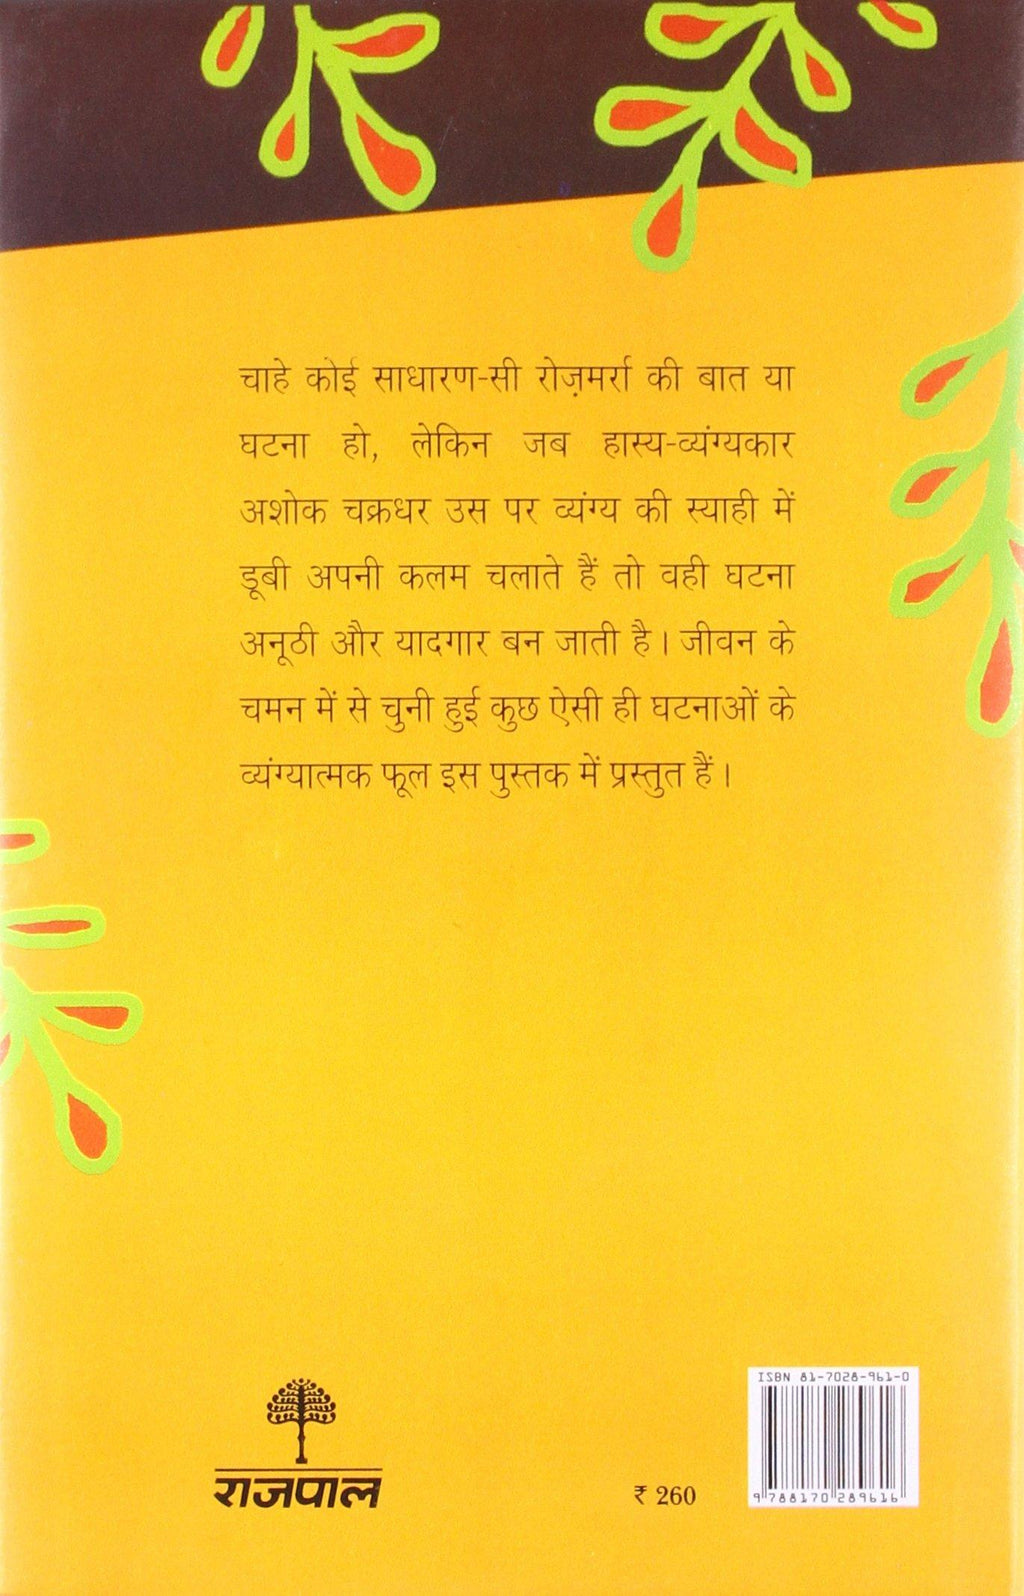 चाहे कोई साधारण-सी रोज़मर्रा की बात या
घटना हो, लेकिन जब हास्य-व्यंग्यकार
अशोक चक्रधर उस पर व्यंग्य की स्याही में
डूबी अपनी कलम चलाते हैं तो वही घटना
अनूठी और यादगार बन जाती है। जीवन के
चमन में से चुनी हुई कुछ ऐसी ही घटनाओं के
व्यंग्यात्मक फूल इस पुस्तक में प्रस्तुत हैं।
राजपाल
₹ 260
ISBN 81-7028-961-0
9 788170 289616